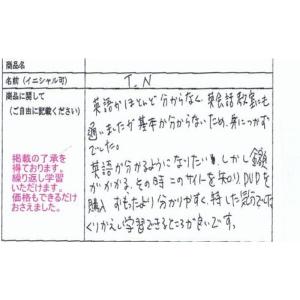 商品名
名前（イニシャル可）
T.N
商品に関して
（ご自由に記載ください）
英語がほとんど分からなく、英会話教室にも
通いましたが基本が分からないため、身につかず
でした。
英語が分かるようになりたい しかし金額
がかかる、その時このサイトを知り、DVDを
購入 思ったより分かりやすく、得した気分でした
くりかえし学習できるところが良いです。
掲載の了承を
得ております。
繰り返し学習
いただけます。
価格もできるだけ
おさえました。